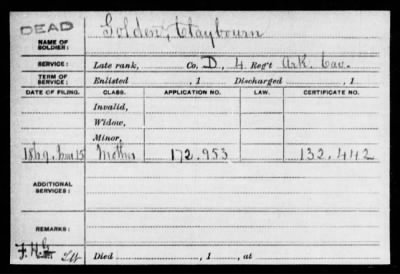 DEAD
NAME OF SOLDIER: Golden, Claybourn
SERVICE: Late rank, Co. D, 4 Reg't Ark. Cav.
TERM OF SERVICE: Enlisted , 1 Discharged , 1
DATE OF FILING. CLASS. APPLICATION NO. LAW. CERTIFICATE NO.
Invalid,
Widow,
Minor,
1869. 15 Mother 172.953 132.442
ADDITIONAL SERVICES:
REMARKS:
Died , 1 , at